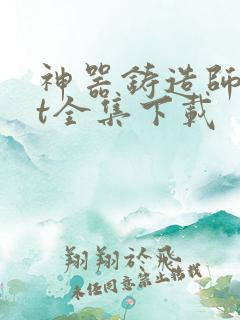 神器鋳造師
t全集下載
翔翔於飛
未经同意禁止转载